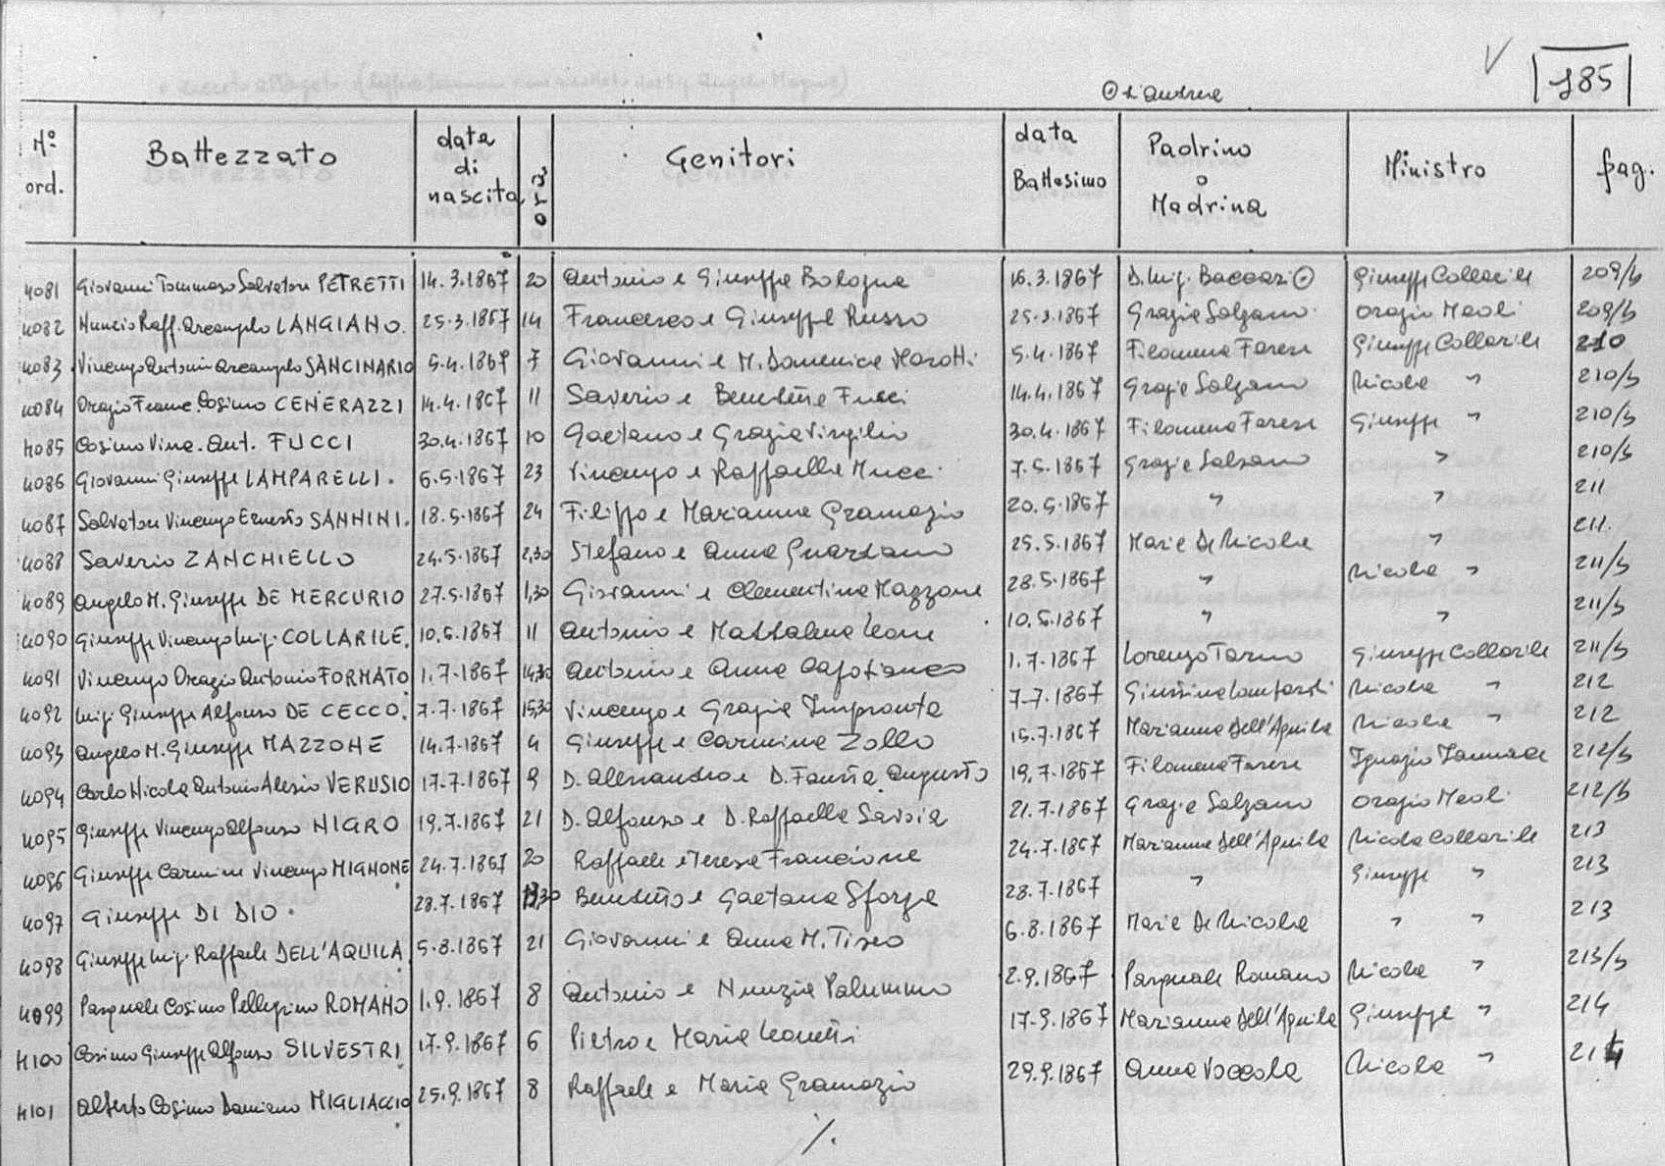 V 185
N° ord. Battezzato data di nascita ora Genitori data Battesimo Padrino o Madrina Ministro pag.
4081 Giovanni Tommaso Salvatore PETRETTI 14.3.1867 20 Antonio e Giuseppa Bologna 16.3.1867 D. Luigi Giuseppe Collarile 209/b
4082 Nunzio Raff. Arcangelo LANGIANO. 25.3.1867 14 Francesco e Giuseppe Russo 25.3.1867 Grazia Salzano Orazio Meoli 209/b
4083 Vincenzo Antonio Arcangelo SANCINARIO 5.4.1867 7 Giovanni e M. Domenica Marotti 5.4.1867 Filomena Farese Giuseppe Collarile 210
4084 Orazio Franc. Cosimo CENERAZZI 14.4.1867 11 Saverio e Benedetta Fucci 14.4.1867 Grazia Salzano Nicola " 210/b
4085 Cosimo Vinc. Ant. FUCCI 30.4.1867 10 Gaetano e Grazia Virgilio 30.4.1867 Filomena Farese Giuseppe " 210/b
4086 Giovanni Giuseppe LAMPARELLI. 6.5.1867 23 Vincenzo e Raffaella Mucci 7.5.1867 Grazia Salzano " 210/b
4087 Salvatore Vincenzo Ernesto SANNINI. 18.5.1867 24 Filippo e Marianna Gramazio 20.5.1867 " " 211
4088 Saverio ZANCHIELLO 24.5.1867 2,30 Stefano e Anna Guardano 25.5.1867 Maria De Nicola " 211.
4089 Angelo M. Giuseppe DE MERCURIO 27.5.1867 1,30 Giovanni e Clementina Mazzone 28.5.1867 " Nicola " 211/b
4090 Giuseppe Vincenzo Luigi COLLARILE. 10.6.1867 11 Antonio e Maddalena Leone 10.6.1867 " " 211/b
4091 Vincenzo Orazio Antonio FORMATO 1.7.1867 14,30 Antonio e Anna Capobianco 1.7.1867 Lorenzo Tarno Giuseppe Collarile 211/b
4092 Luigi Giuseppe Alfonso DE CECCO. 7.7.1867 15,30 Vincenzo e Grazia Impronta 7.7.1867 Giustina Lombardi Nicola " 212
4093 Angelo M. Giuseppe MAZZONE 14.7.1867 4 Giuseppe e Carmina Zollo 15.7.1867 Marianna Dell'Aquila Nicola " 212
4094 Carlo Nicola Antonio Alesio VERUSIO 17.7.1867 9 D. Alessandro e D. Fausta Augusto 19.7.1867 Filomena Farese Ignazio Iannace 212/b
4095 Giuseppe Vincenzo Alfonso NIGRO 19.7.1867 21 D. Alfonso e D. Raffaella Savoia 21.7.1867 Grazia Salzano Orazio Meoli 212/b
4096 Giuseppe Carmine Vincenzo MIGNONE 24.7.1867 20 Raffaele e Teresa Francione 24.7.1867 Marianna Dell'Aquila Nicola Collarile 213
4097 Giuseppe DI DIO. 28.7.1867 Benedetto e Gaetana Sforza 28.7.1867 " Giuseppe " 213
4098 Giuseppe Luigi Raffaele DELL'AQUILA 5.8.1867 21 Giovanni e Anna M. Tiseo 6.8.1867 Maria De Nicola " " 213
4099 Pasquale Cosimo Pellegrino ROMANO 1.9.1867 8 Antonio e Nunzia Palummo 2.9.1867 Pasquale Romano Nicola " 213/b
4100 Cosimo Giuseppe Alfonso SILVESTRI 17.9.1867 6 Pietro e Maria Leonetti 17.9.1867 Marianna Dell'Aquila Giuseppe " 214
4101 Alberto Cosimo Damiano MIGLIACCIO 25.9.1867 8 Raffaele e Maria Gramazio 29.9.1867 Anna Voccola Nicola " 214
./.